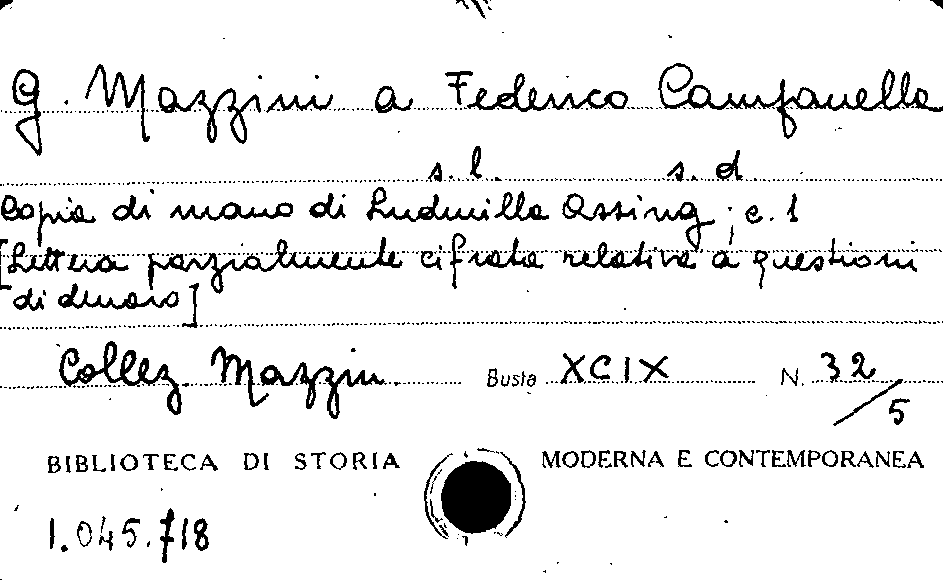 G. Mazzini a Federico Campanella
s. l. s. d.
Copia di mano di Ludmilla Assing; c. 1
[Lettera parzialmente cifrata relativa a questioni
di denaro]
Collez. Mazzin. Busta XCIX N. 32/5
BIBLIOTECA DI STORIA MODERNA E CONTEMPORANEA
1.045.718